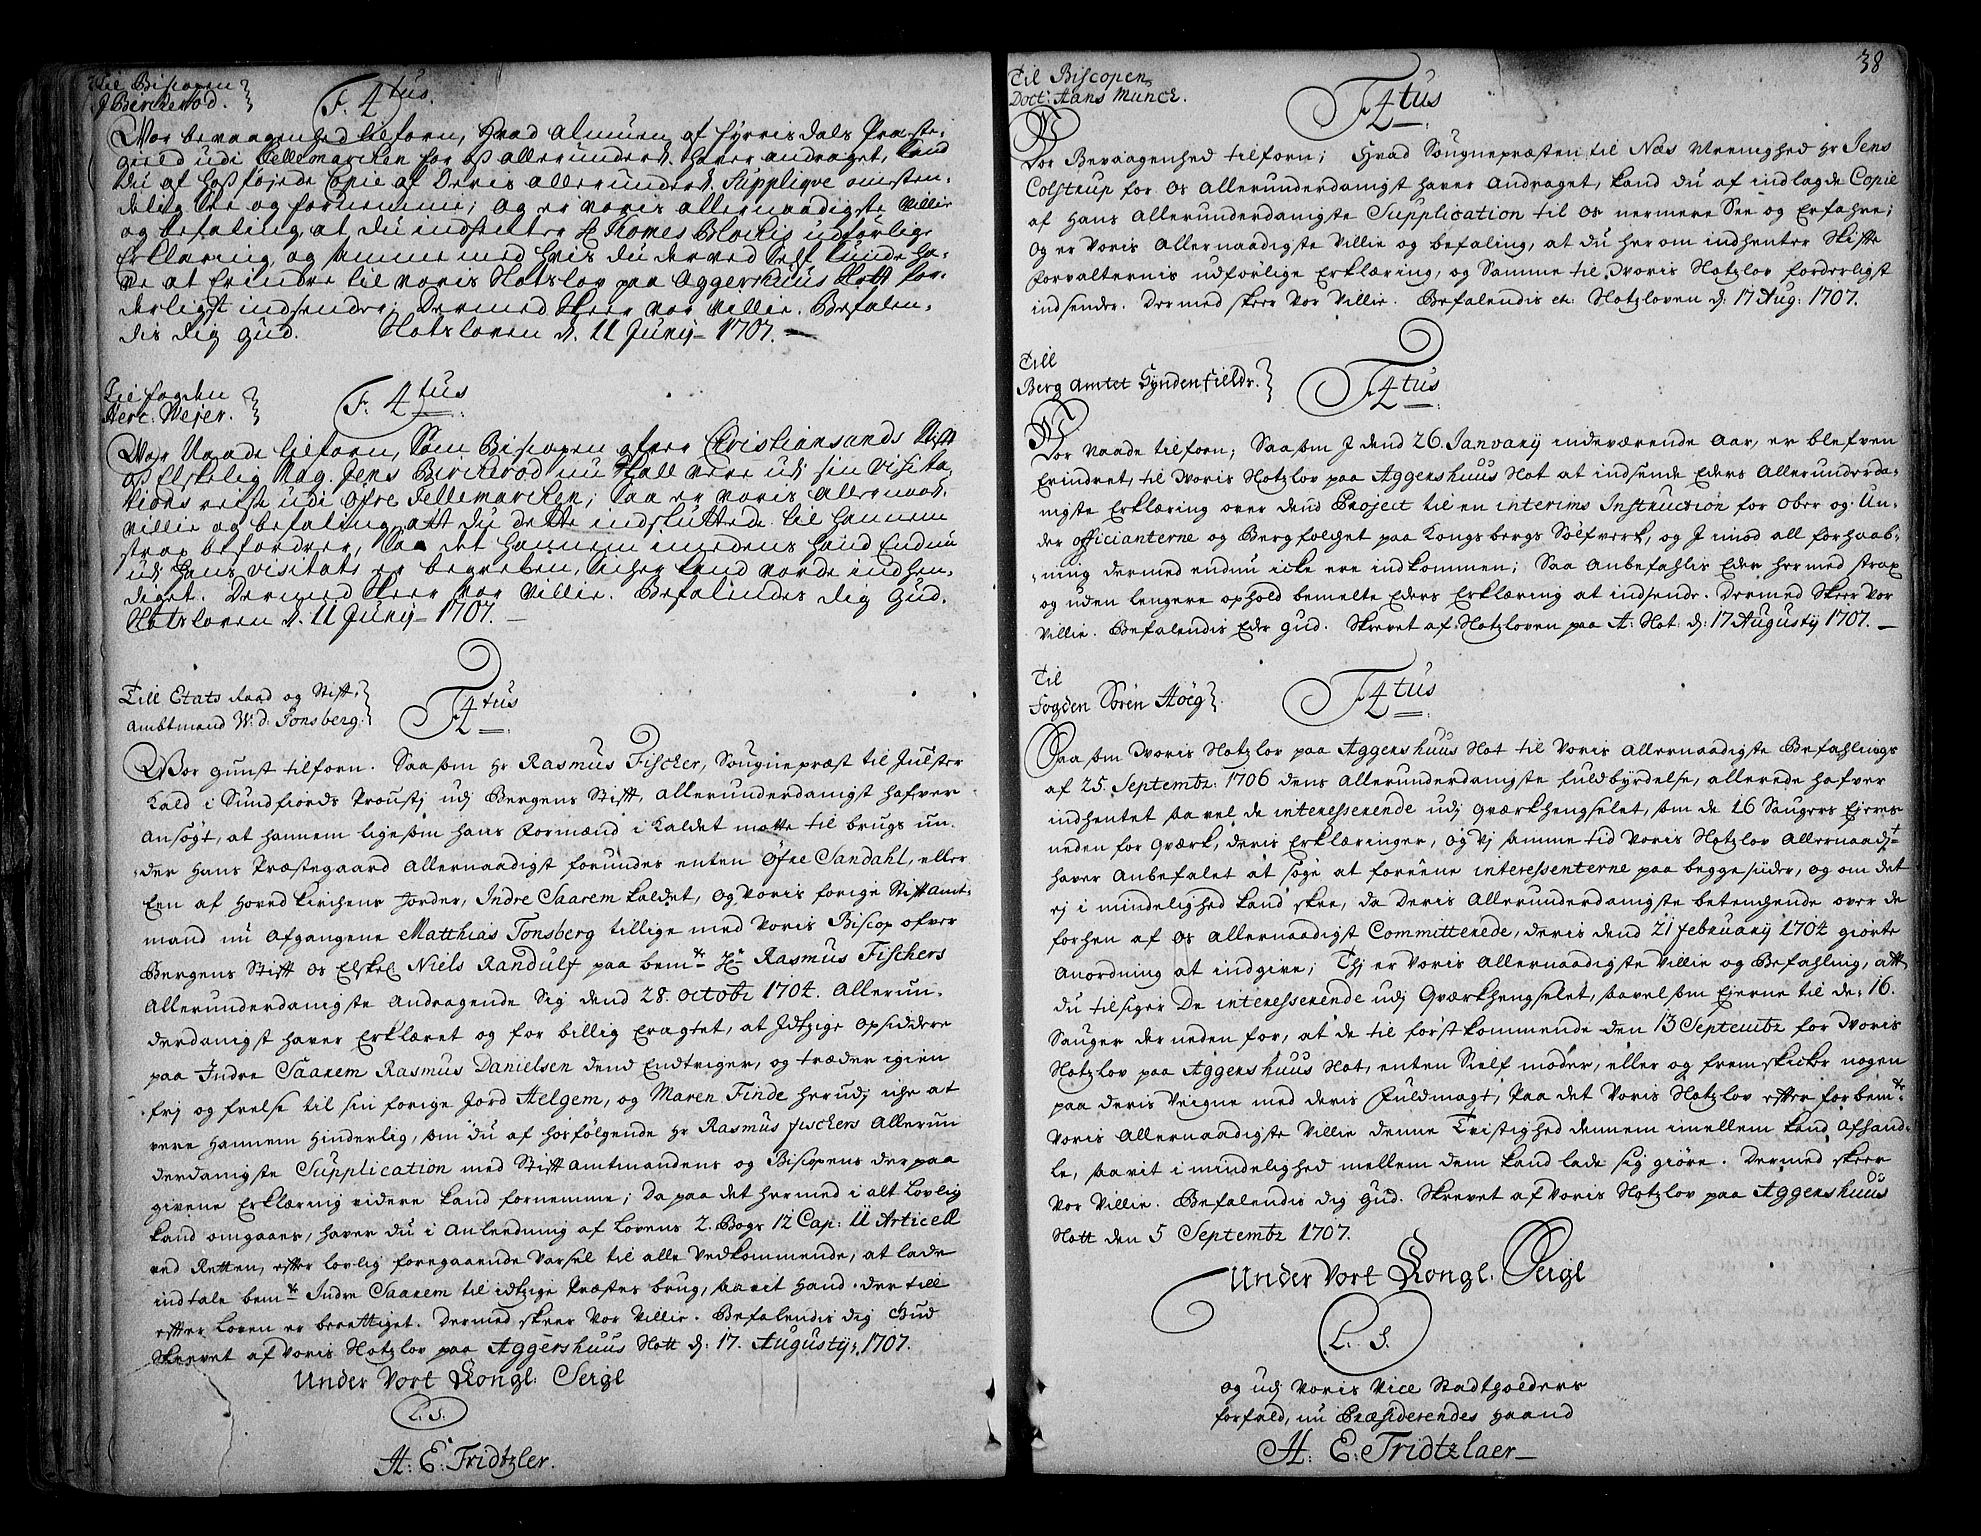 Til Biscopen
J Birckerod.
F. 4tus.
Vor bevaagenhed tilforn, Hvad Almuen af Hvirrisdals Præste-
gield udi Tellemarcken for os allerunderd. haver andraget, kand
du af hosføjede Copie af Deris allerunderd. Supplique omsten-
delig See og fornemme; og er voris allernaadigste Villie
og befaling, at du indhenter H Thomes Blochis udførlige
Erklæring og samme med hvis du derved Self kunde ha-
ve at Erindre til voris Slotslov paa Aggershuus Slott for-
derligst indsender. Dermed skeer vor Villie. Befalen-
dis dig Gud. Slotsloven d. 11 Junij 1707.
Til fogden
Herc: Wejer.
F. 4tus
Vor Naade tilforn, Som Biscopen ofver Christiansands Stift
os Elskelig Mag. Jens Birckerod nu skall være udj sin Visita-
tions reise udi Øfre Tellemarcken; Saa er voris Allernaad.
Villie og befaling, att du dette indsluttede til hannem
strax befordrer, Saa det hannem imedens hand Endnu
udj hans Visitats er begreben, sicher kand vorde indhen-
diget. Dermed skeer vor Villie. Befalendes dig Gud.
Slotsloven d. 11 Junij 1707.
Till Etats Raad og Stift-
Ambtmand W: d: Tonsberg.
F4tus
Vor gunst tilforn. Saasom Hr Rasmus Fischer, Sougnepræst til Julster
Kald i Sundfiords Proustj udj Bergens Stift, allerunderdanigst hafver
Ansøgt, at hannem ligesom hans Formænd i Kaldet motte til brugs un-
der hans Præstegaard Allernaadigst forundes enten Øfre Sandahl, eller
Een af Hoved Kirchens Jorder, Indre Saarem kaldet, og Voris forige Stiftamt-
mand nu Afgangene Matthias Tonsberg tillige med Voris Biscop ofver
Bergens Stift os Elskel: Niels Randulf paa bemte Hr Rasmus Fischers
Allerunderdanigste Andragende Sig dend 28. octobr 1704. Allerun-
derdanigst haver Erklæret og for billig Eragtet, at Jdtzige Opsiddere
paa Indre Saarem Rasmus Danielsen dend Endtviger, og træder igien
frj og frelse til sin forige Jord Helgem, og Maren Finde herudj iche at
vere hannem hinderlig, som du af hosfølgende Hr Rasmus fischers Allerun
derdanigste Supplication med Stiftamtmandens og Biscopens derpaa
givene Erklæring videre kand fornemme; Da paa det hermed i alt Lovlig
kand omgaaes, haver du i Anledning af Lovens 2. Bogs 12 Cap: 11 Articell
ved Retten, efter lovlig foregaaende Varsel til alle Vedkommende, at lade
indtale bemte Indre Saarem til idtzige Præstes brug, saavit Hand der till
efter Loven er berettiget. Dermed skeer Vor Villie. Befalendis dig Gud
Skrevet af Voris Slotzlov paa Aggershuus Slott d: 17. Augustij: 1707.
Under Vort Kongl: Seigl
L. S.
H: E: Fridtzler.
38
Til Biscopen
Doct: Hans Munck.
F4tus
Vor Bevaagenhed tilforn; Hvad Sougnepræsten til Næs Menighed Hr Jens
Colstrup for os Allerunderdanigst haver Andraget, kand du af indlagde Copie
af Hans Allerunderdanigste Supplication til os nermere See og Erfahre;
Og er Voris Allernaadigste Villie og befaling, at du herom indhenter Skifte
Forvalternis udførlige Erklæring, og Samme til Woris Slotzlov forderligst
indsender. Dermed skeer Vor Villie. Befalendis etc: Slotzloven d: 17 Aug: 1707.
Till
Berg Amtet Syndenfields.
F4tus
Vor Naade tilforn; Saasom J dend 26. Januarij indeværende Aar, er blefven
Erindret, til Woris Slotzlov paa Aggershuus Slot at indsende Eders Allerunderda-
nigste Erklæring over dend Project til en interims Instruction for Ober og Un-
der officianterne og Bergfolchet paa Kongsbergs Sølfverk, og J imod all forhaab-
ning dermed endnu icke ere indkommen; Saa Anbefahlis Eder hermed strax
og uden lengere ophold bemelte Eders Erklæring at indsende. Dermed Skeer Vor
Villie. Befalendis Eder Gud. Skrevet af: Slotzloven paa A: Slot: d: 17 Augustij 1707.
Til
Fogden Søren Høeg.
F4tus
Saasom Woris Slotzlov paa Aggershuus Slot til Voris Allernaadigste Befahlings
af 25. Septembr: 1706 dens Allerunderdanigste fuldbyrdelse, allerede hafver
indhentet saavel de interesserende udj Qværkhengselet, som de 16 Saugers Ejeres
neden for Qværk, deris Erklæringer, og Vj samme tid Voris Slotzlov Allernaadjt
haver Anbefalet at søge at foreene interessenterne paa begge siider, og om det
ej i mindelighed kand skee, da Deris Allerunderdanigste betenchende over de
forhen af os Allernaadigst Committerede, deris dend 21 februarij 1704 giorte
Anordning at indgive; Thj er Voris Allernaadigste Villie og Befahling, att
du tilsiger De interesserende udj Qværkhengselet, saavelsom Ejerne til de: 16.
Sauger derneden for, at de til førstkommende den 13 Septembr for Woris
Slotzlov paa Aggershuus Slot, enten Sielf møder, eller og fremskicker nogen
paa deris Veigne med deris Fuldmagt, Paa det Voris Slotzlov efter forbemte
Voris Allernaadigste Villie denne Tvistighed dennem imellem kand Afhand-
le, saavit i mindelighed mellem dem kand lade sig giøre. Dermed skeer
Vor Villie. Befalendis dig Gud. Skrevet af Voris Slotzlov paa Aggershuus
Slott den 5 Septembr 1707.
Under Vort Kongl: Seigl
L. S.
og udj Voris Vice Stadtholders
forfald, nu Præsiderendes Haand
H: E: Fridtzlaer